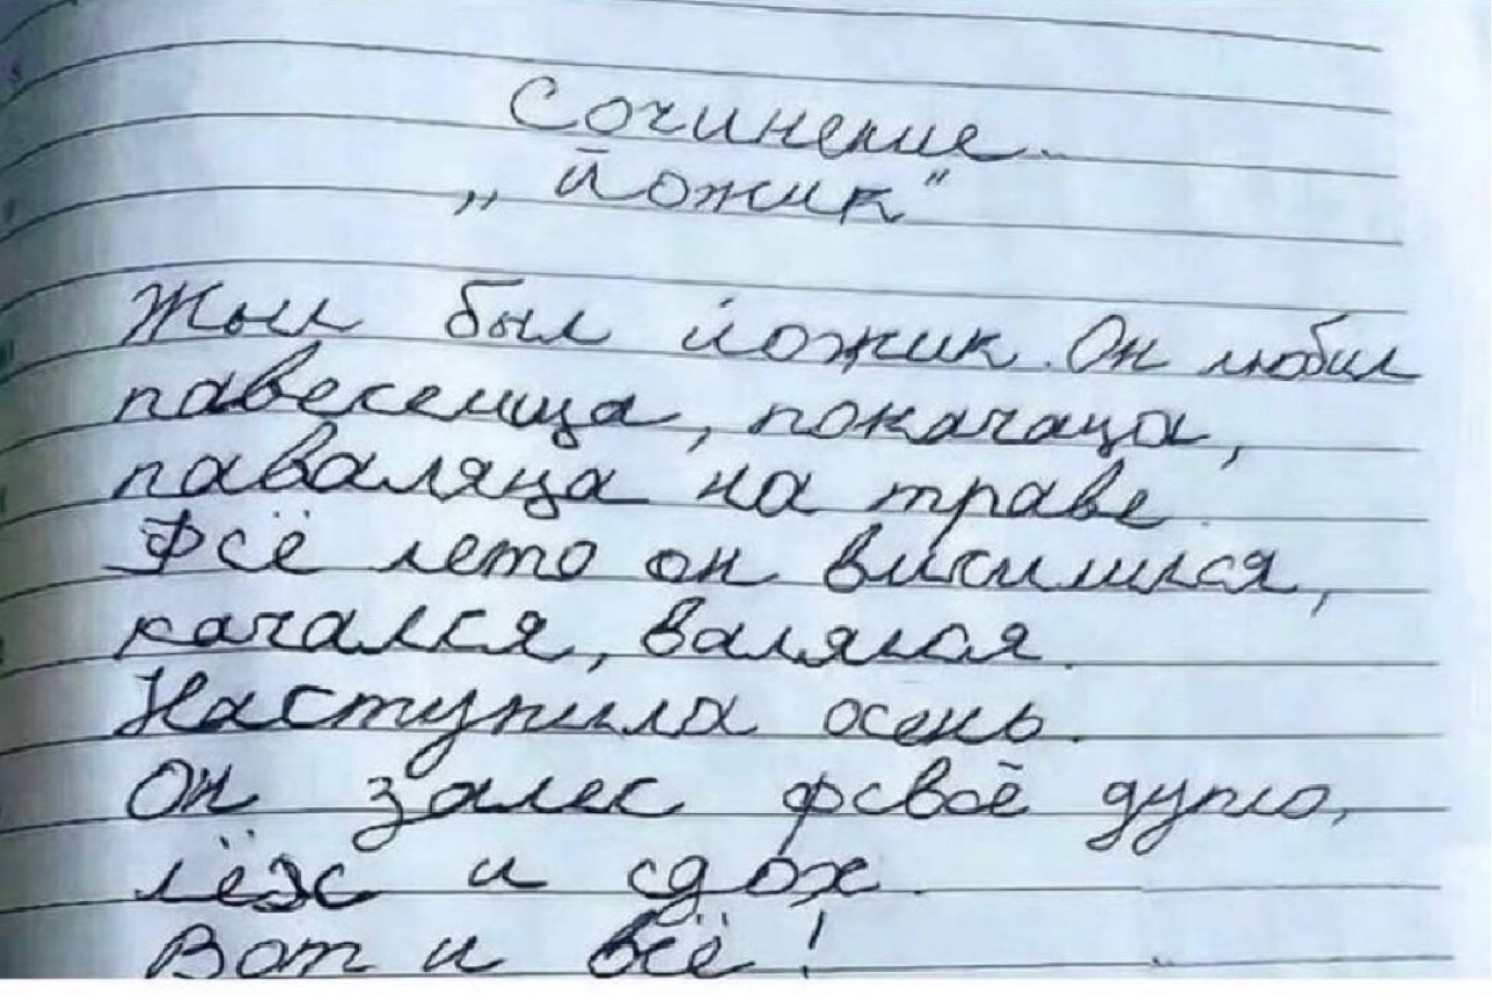 Сочинение
„Йожик"
Жыл был йожик. Он любил
павеселица, покачаца,
паваляца на траве.
Фсё лето он висилился,
качался, валялся.
Наступила осень.
Он залес фсвоё дупло,
лёк и сдох.
Вот и всё!